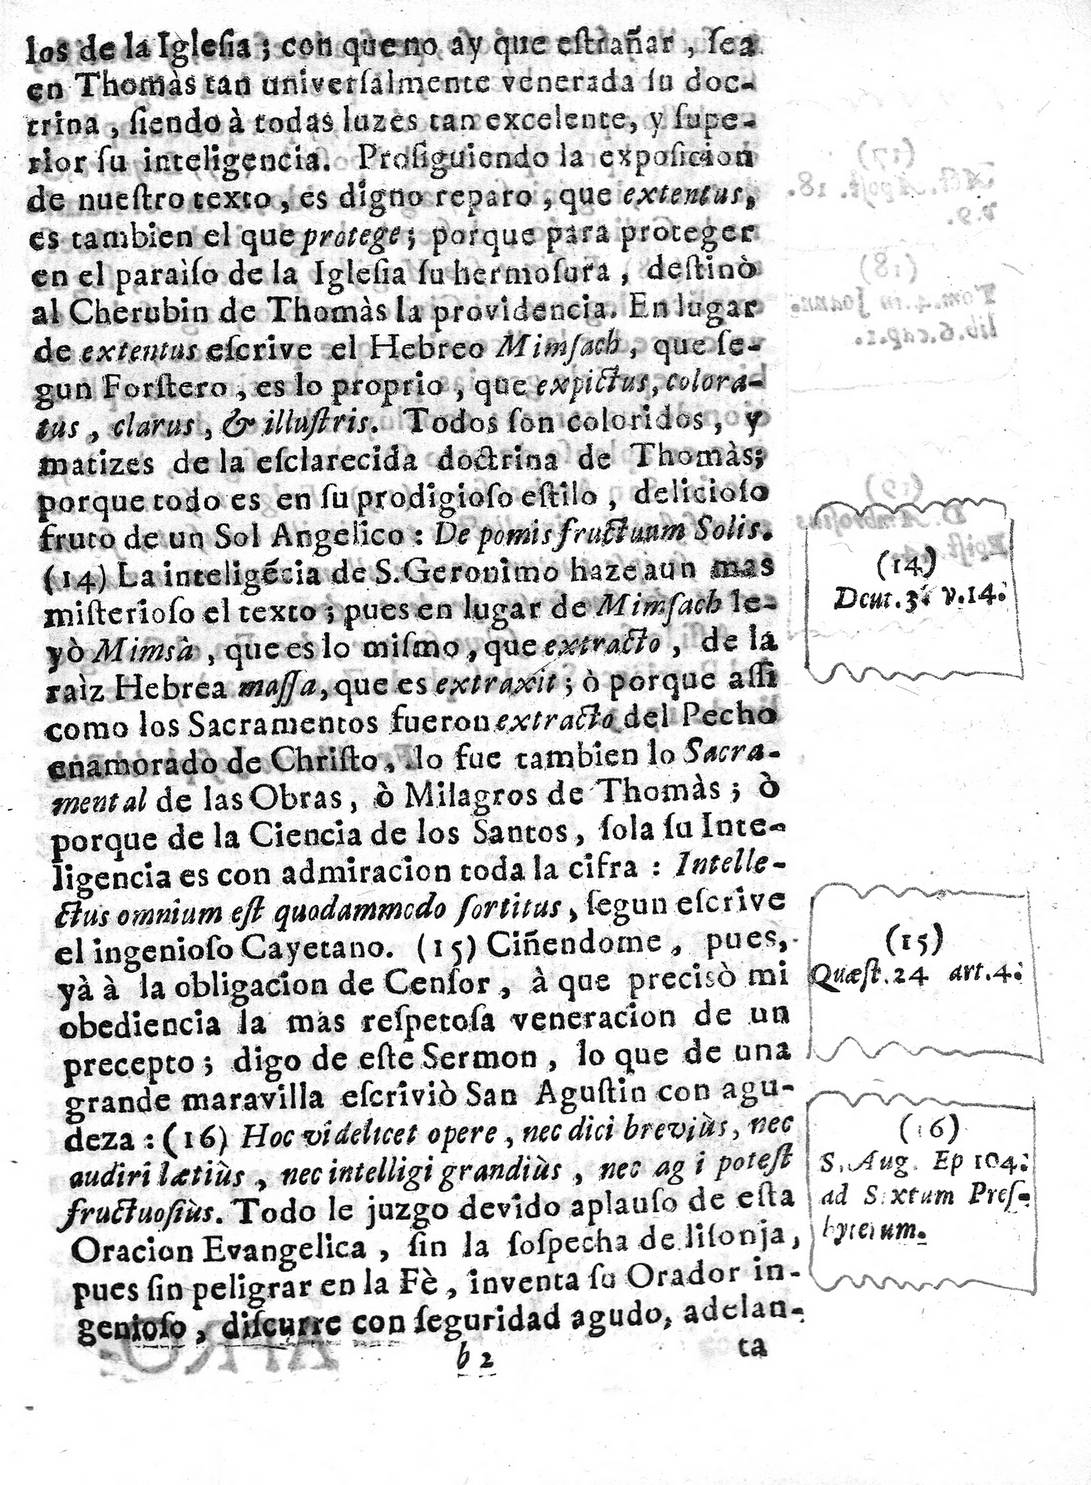 los de la Iglesia ; con que no ay que estrañar , sea
en Thomàs tan universalmente venerada su doc-
trina , siendo à todas luzes tan excelente, y supe-
rior su inteligencia. Prosiguiendo la exposicion
de nuestro texto , es digno reparo ; que extentus,
es tambien el que protege ; porque para proteger
en el paraiso de la Iglesia su hermosura , destinò
al Cherubin de Thomàs la providencia. En lugar
de extentus escrive el Hebreo Mimsach , que se-
gun Forstero , es lo proprio , que expictus, colora-
tus , clarus , & illustris. Todos son coloridos , y
matizes de la esclarecida doctrina de Thomàs;
porque todo es en su prodigioso estilo , delicioso
fruto de un Sol Angelico : De pomis fructuum Solis.
(14) La inteligẽcia de S.Geronimo haze aun mas
misterioso el texto ; pues en lugar de Mimsach le-
yò Mimsà , que es lo mismo , que extracto , de la
raìz Hebrea massa, que es extraxit ; ò porque assi
como los Sacramentos fueron extracto del Pecho
enamorado de Christo, lo fue tambien lo Sacra-
mental de las Obras, ò Milagros de Thomàs ; ò
porque de la Ciencia de los Santos, sola su Inte-
ligencia es con admiracion toda la cifra : Intelle-
ctus omnium est quodammodo sortitus, segun escrive
el ingenioso Cayetano. (15) Ciñendome , pues,
yà à la obligacion de Censor , à que precisò mi
obediencia la mas respetosa veneracion de un
precepto ; digo de este Sermon , lo que de una
grande maravilla escriviò San Agustin con agu-
deza : (16) Hoc videlicet opere , nec dici breviùs, nec
audiri lætiùs , nec intelligi grandiùs , nec ag i potest
fructuosiùs. Todo le juzgo devido aplauso de esta
Oracion Evangelica , sin la sospecha de lisonja,
pues sin peligrar en la Fè , inventa su Orador in-
genioso , discurre con seguridad agudo, adelan-
b 2
ta
(14)
Deut. 3 . v.14.
(15)
Quæst.24 art.4.
(16)
S. Aug. Ep 104.
ad S xtum Pres-
byterum.